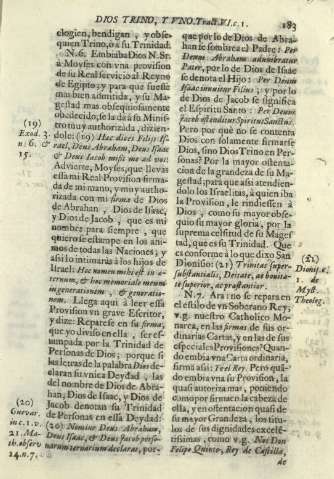 DIOS TRINO, Y VNO. Tract. VI. c. 1. 183
elogien, bendigan, y obse-
quien Trino, ò à su Trinidad.
N. 6. Embiaba Dios N. Sr.
à Moysès con vna provision
de su Real servicio al Reyno
de Egipto; y para que fuesse
mas bien admitida, y su Ma-
gestad mas obsequiosamente
obedecido, se la dà à su Minis-
tro muy authorizada, dizien-
dole: (19) Hæc dices Filijs Is-
rael, Deus Abraham, Deus Isaac
& Deus Jacob misit me ad vos:
Advierte, Moyses, que llevas
esta mi Real Provision firma-
da de mi mano, y muy autho-
rizada con mi firma de Dios
de Abrahan, Dios de Isaac,
y Dios de Jacob, que es mi
nombre para siempre, que
quiero se estampe en los ani-
mos de todas las Naciones, y
assi lo intimarás à los hijos de
Israel: Hoc nomen mihi est in æ-
ternum, & hoc memoriale meum
in generationem, & generatio-
nem. Llega aqui à leer essa
Provision vn grave Escritor,
y dize: Reparese en su firma,
que yo diviso en ella, ser es-
tampada por la Trinidad de
Personas de Dios; porque si
las letras de la palabra Dios de-
claran su vnica Deydad, las
del nombre de Dios de Abra-
han, Dios de Isaac, y Dios de
Jacob denotan su Trinidad
de Personas en essa Deydad:
(20) Nomine Deus Abraham,
Deus Isaac, & Deus Jacob perso-
narum ternarium declaras, por-
(19)
Exod. 3.
n. 6. &
15.
(20)
in c. 1. v.
21. Ma-
th. observ
14. n. 7.
que por lo de Dios de Abra-
han se sombrea el Padre: Per
Deum Abraham adumbratur
Pater, por lo de Dios de Isaac
se denota el Hijo: Per Deum
Isaac innuitur Filius; y por lo
de Dios de Jacob se significa
el Espiritu Santo: Per Deum
Jacob ostenditur Spiritus Sanctus.
Pero por què no se contenta
Dios con solamente firmarse
Dios, sino Dios Trino en Per-
sonas? Por la mayor ostenta-
cion de la grandeza de su Ma-
gestad, para que assi atendien-
dolo los Israelitas, à quien iba
la Provision, le rindiessen à
Dios, como su mayor obse-
quio su mayor gloria, por la
suprema celsitud de su Mages-
tad, que es su Trinidad. Que
es conforme à lo que dixo San
Dionisio: (21) Trinitas super-
substantialis, Deitate, ac bonita-
te superior, ac præstantior.
N. 7. Ara: no se repara en
el estilo de vn Soberano Rey
v.g. nuestro Catholico Mo-
narca, en las firmas de sus or-
dinarias Cartas, y en las de sus
especiales Provisiones? Quan-
do embia vna Carta ordinaria,
firma assi: Yo el Rey. Pero quã-
do embia vna su Provision, la
qual autoriza mas, poniendo
como por firma en la cabeza de
ella, y en ostentacion quasi de
su mayor Grandeza, los titu-
los de sus dignidades excelẽ-
tissimas, como v.g. Nos Don
Felipe Quinto, Rey de Castilla,
de
(21)
1. de
Myst.
Theolog.